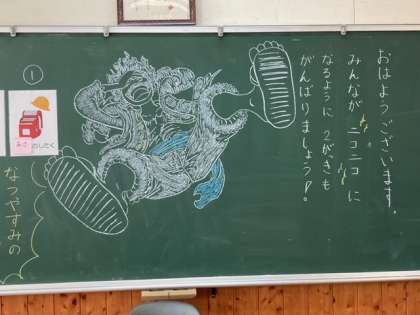 おはようございます。
みんなが ニコニコ に
なるように 2がっきも
がんばりましょうP。
①
のしたく
なつやすみの